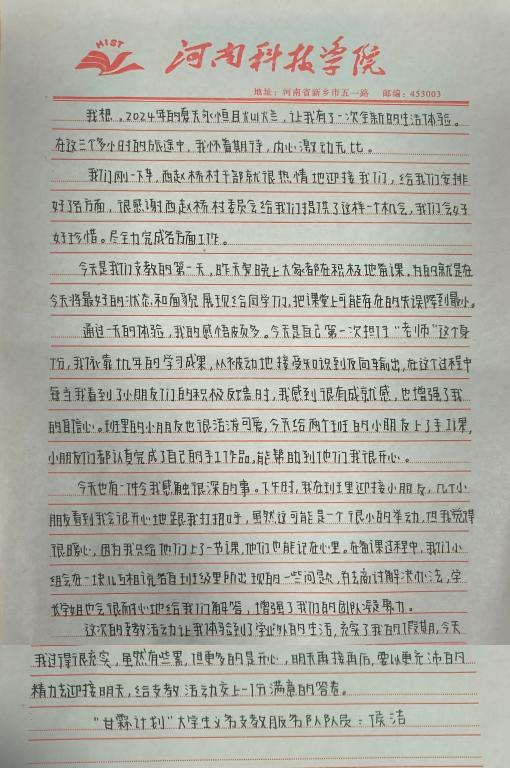 HIST
河南科技学院
地址：河南省新乡市五一路 邮编：453003
我想，2024年的夏天永恒且灿烂，让我有了一次全新的生活体验。
在这三个多小时的旅途中，我怀着期待，内心激动无比。
我们刚一下车，西赵杨村干部就很热情地迎接我们，给我们安排
好了各方面，很感谢西赵杨村委员会给我们提供了这样一个机会，我们会好
好珍惜。尽全力完成各方面工作。
今天是我们支教的第一天，昨天架晚上大家都在积极地备课，为的就是在
今天将最好的状态和面貌展现给同学们，把课堂上可能存在的失误降到最小。
通过一天的体验，我的感悟颇多。今天是自己第一次担任“老师”这个身
份，我依靠十几年的学习成果，从被动地接受知识到反向输出，在这个过程中
每当我看到了小朋友们的积极反馈时，我感到很有成就感，也增强了我
的自信心。班里的小朋友也很活泼可爱，今天给两个班的小朋友上了手工课，
小朋友们都认真完成了自己的手工作品，能帮助到他们我很开心。
今天也有一件令我感触很深的事。下午时，我在班里迎接小朋友，几个小
朋友看到我会很开心地跟我打招呼，虽然这可能是一个很小的举动，但我觉得
很暖心，因为我只给他们上了一节课，他们也能记在心里。在备课过程中，我们小
组会在一块儿互相说着自班级里所出现的一些问题，有去商讨解决办法，学
长学姐也会很耐心地给我们解答，增强了我们的团队凝聚力。
这次的支教活动让我体验到了学业外的生活，充实了我的假期，今天
我过得很充实，虽然有些累，但更多的是开心，明天再接再厉，要以更充沛的
精力去迎接明天，给支教活动交上一份满意的答卷。
“甘霖计划”大学生义务支教服务队队员：侯洁